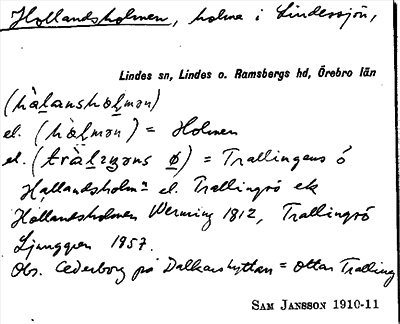 Hollandsholmen, holme i Lindessjön,
Lindes sn, Lindes o. Ramsbergs hd, Örebro län
(hàlansholmən)
el. (hòlmən) = Holmen
el. (trälıŋəns ø) = Trallingens ö
Hallandsholmn el. Trallingsö ek
Hållandsholmen Werming 1812, Trallingsö
Ljunggren 1857.
Obs. Cederborg på Dalkarshyttan = Ottar Tralling
SAM JANSSON 1910-11